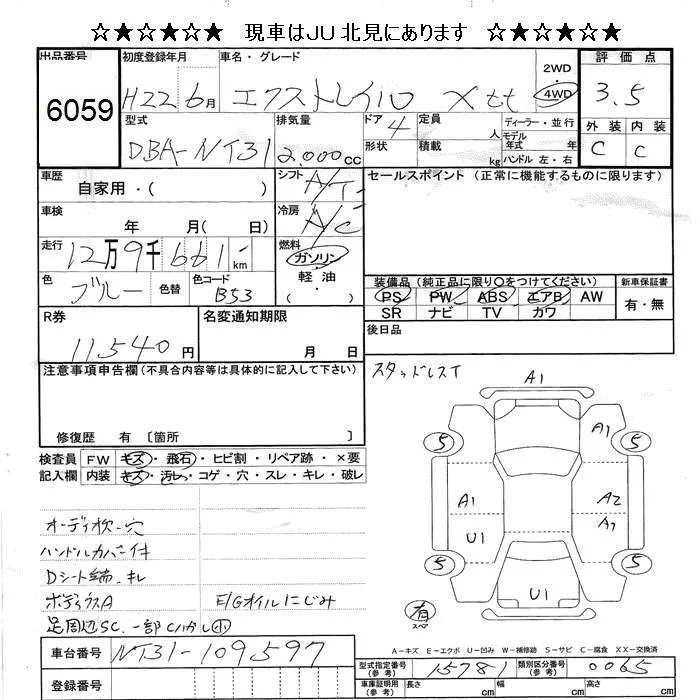 ☆★☆★☆★ 現車はJU北見にあります ☆★☆★☆★
出品番号 初度登録年月 車名・グレード 2WD 評価点
6059 H22 6月 エクストレイル Xtt 4WD 3.5
型式 排気量 ドア 4 定員 人 ディーラー・並行 外装 内装
DBA-NT31 2,000cc 形状 積載 kg モデル年式 年 ハンドル 左・右 C C
車歴 自家用・( ) シフト A/T セールスポイント (正常に機能するものに限ります)
車検 年 月( 日) 冷房 A/C
走行 12万9千661km 燃料 ガソリン
色 ブルー 色替 色コード B53 軽油・( )
装備品(純正品に限り○をつけてください) 新車保証書
PS PW ABS エアB AW 有・無
SR ナビ TV カワ
R券 11,540円 名変通知期限 月 日 後日品
注意事項申告欄(不具合内容等は具体的に記入して下さい) スタッドレスT
修復歴 有 〔箇所 〕
検査員 FW キズ・飛石・ヒビ割・リペア跡・×要
記入欄 内装 キズ・汚レ・コゲ・穴・スレ・キレ・破レ
A1
A1
5 5
A1 A2
U1 A1
5 5
U1
有
スペア
オーディオ枠-穴
ハンドルカバー付
Dシート端-キレ
ボディウスA E/Gオイルにじみ
足周辺SC. 一部Cハガレ小
A-キズ E-エクボ U-凹み W-補修跡 S-サビ C-腐食 XX-交換済
車台番号 NT31-109597 型式指定番号(参考) 15781 類別区分番号(参考) 0065
登録番号 車庫証明用(参考) 長さ cm 幅 cm 高さ cm